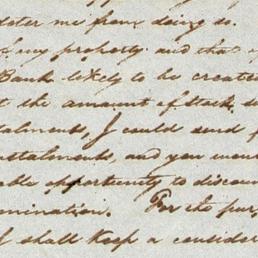 deter me from doing so.
of my property and that of
Bank likely to be created
t the amount of stock, su
talments, I could send f
nstalments, and you woul
able opportunity to discoun
mination. For the pur
I shall keep a consider